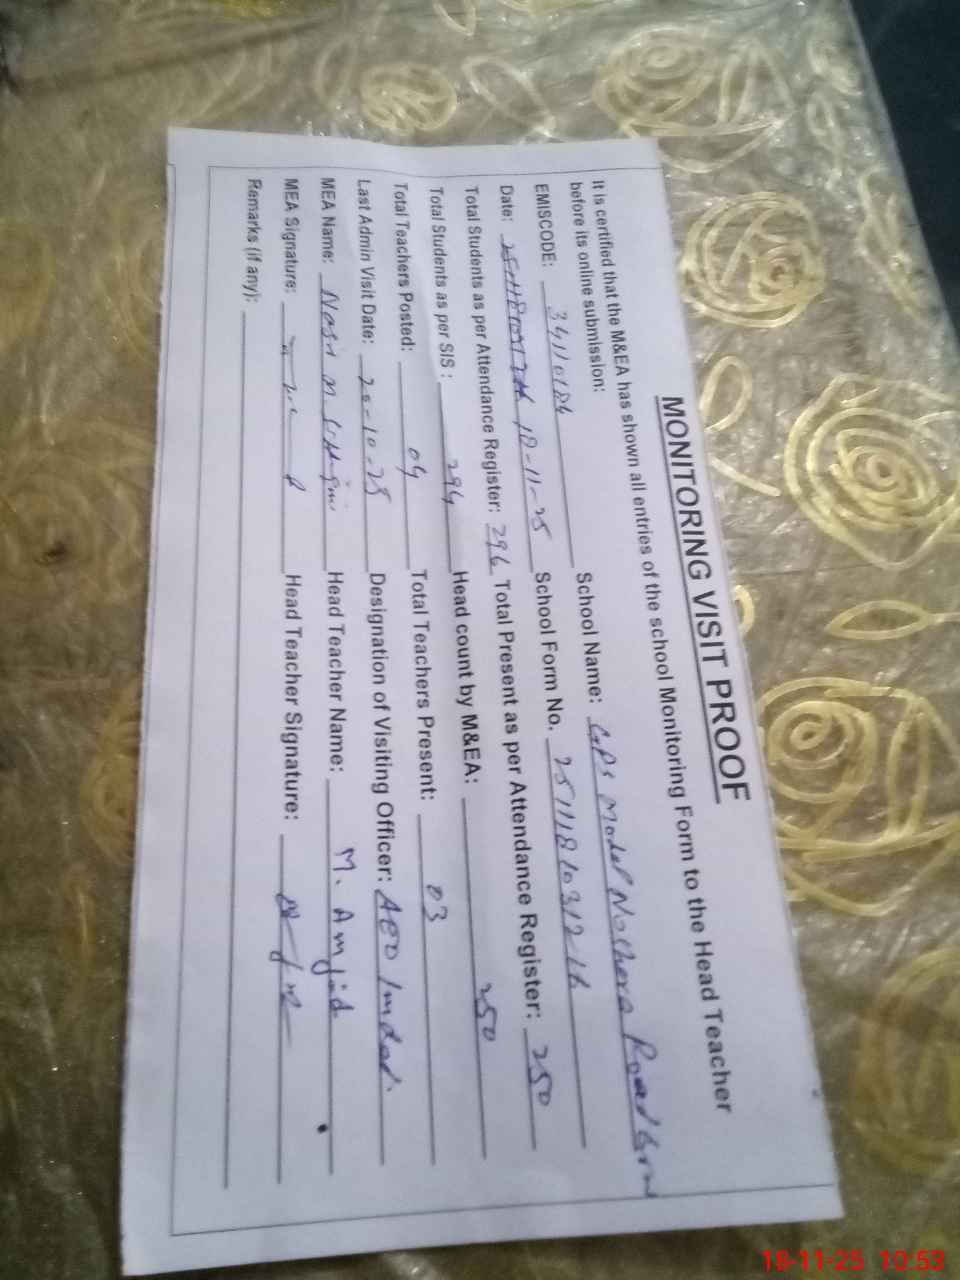 MONITORING VISIT PROOF
It is certified that the M&EA has shown all entries of the school Monitoring Form to the Head Teacher
before its online submission:
EMISCODE: 34110184 School Name: GPS Model Nothera Road
Date: 18-11-25 School Form No.
Total Students as per Attendance Register: 296 Total Present as per Attendance Register: 250
Total Students as per SIS : 294 Head count by M&EA: 250
Total Teachers Posted: 04 Total Teachers Present: 03
Last Admin Visit Date: 20-10-25 Designation of Visiting Officer: AEO Imdad
MEA Name: Head Teacher Name: M. Amjid
MEA Signature: Head Teacher Signature:
Remarks (if any):
18-11-25 10:53